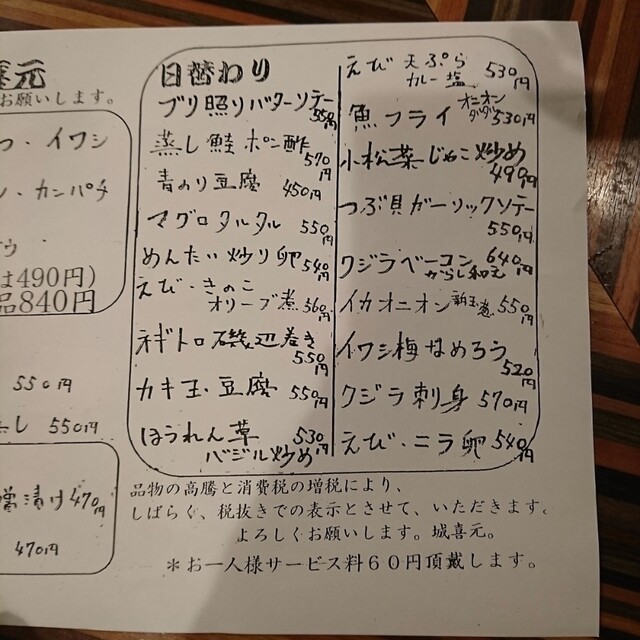 喜元
お願いします。
つ・イワシ
ン・カンパチ
は490円)
品840円
550円
し 550円
噌漬け 470円
470円
日替わり
ブリ照りバターソテー
550円
蒸し鮭ポン酢
570円
青のり豆腐 450円
マグロタルタル 550円
めんたい炒り卵 540円
えび・きのこ
オリーブ煮 560円
ネギトロ磯辺巻き
550円
カキ玉豆腐 550円
ほうれん草 530円
バジル炒め
えび天ぷら
カレー塩 530円
魚フライ オニオン
タルタル 530円
小松菜じゃこ炒め
490円
つぶ貝ガーリックソテー
550円
クジラベーコン 640円
からし和え
イカオニオン 550円
イワシ梅なめろう
520円
クジラ刺身 570円
えび・ニラ卵 540円
品物の高騰と消費税の増税により、
しばらく、税抜きでの表示とさせて、いただきます。
よろしくお願いします。城喜元。
*お一人様サービス料60円頂戴します。